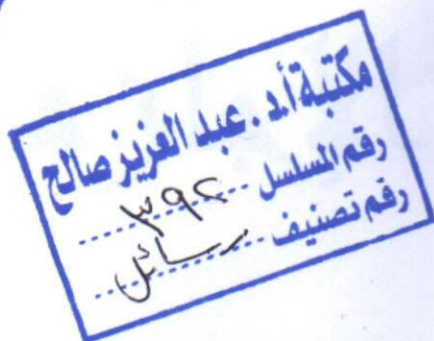 مكتبة أ.د. عبد العزيز صالح
رقم المسلسل ٣٩٢
رقم تصنيف رسائل